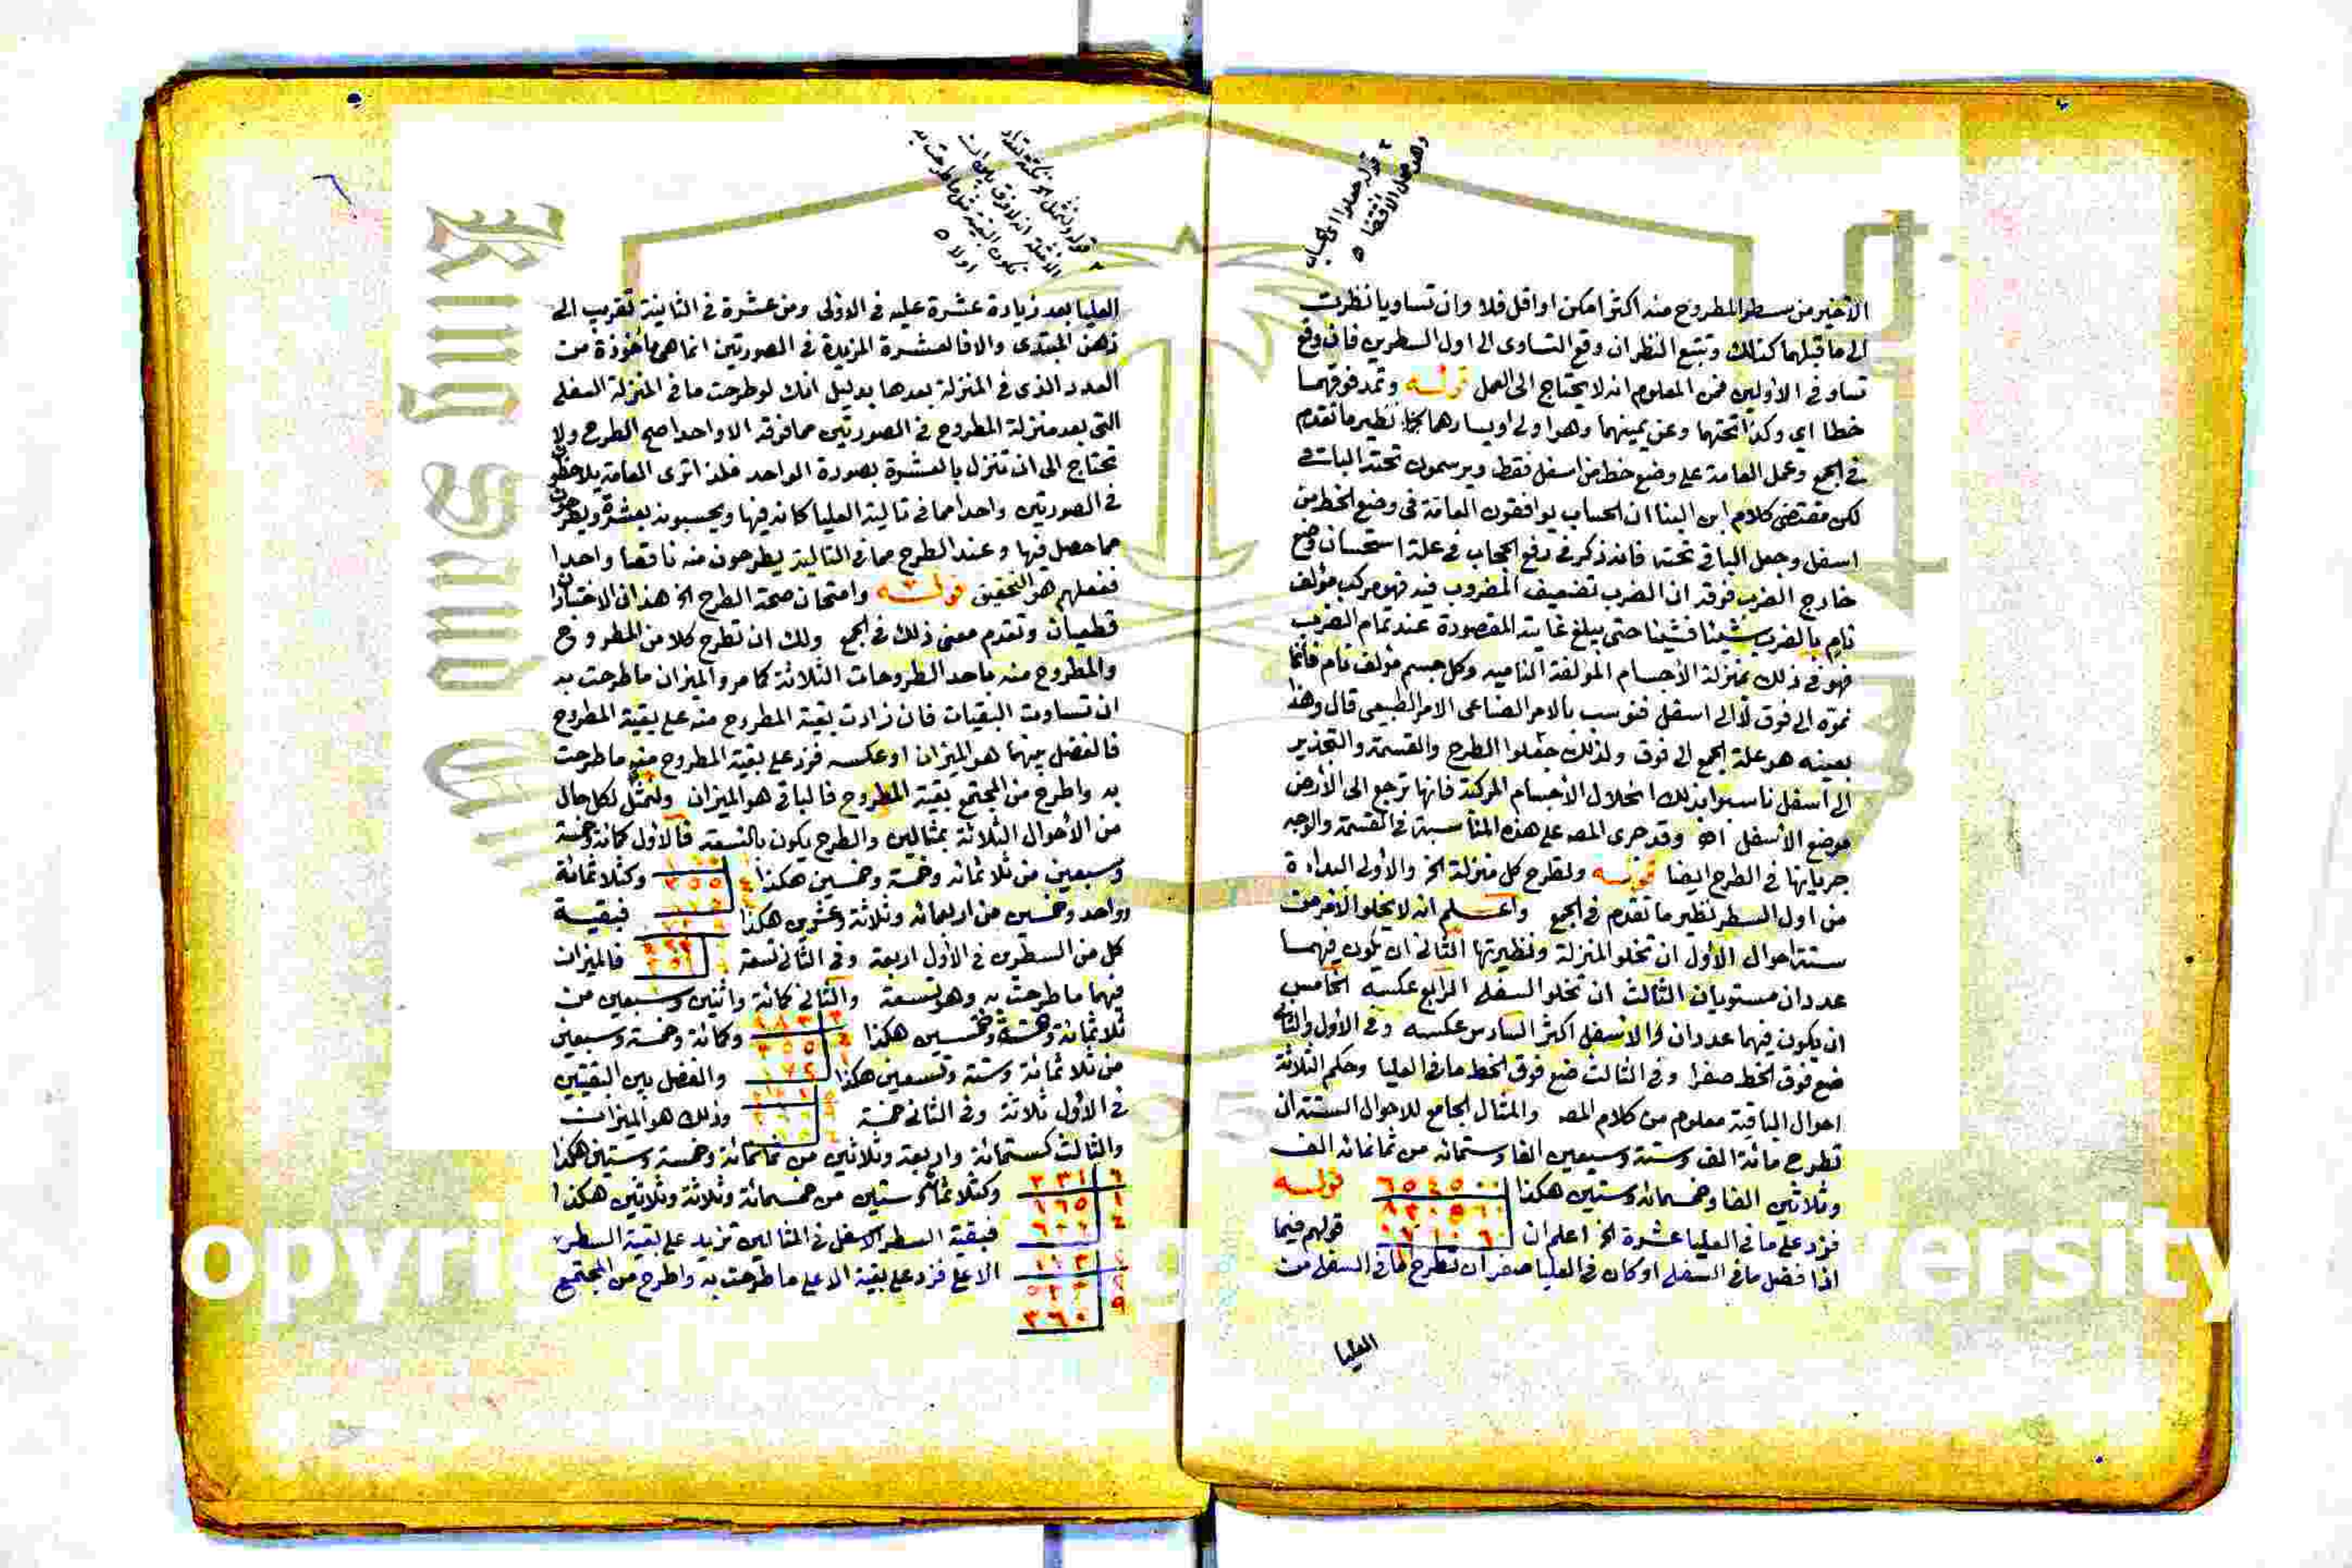 قوله جعلوا الى الحساب
وهو محل الاقتضا ه
الأخير من سطر المطروح منه اكثر امكن او اقل فلا وان تساويا نظرت
الى ما قبلهما كذلك وتتبع النظر ان وقع التساوى الى اول السطرين فان وقع
تساو فى الأولين فمن المعلوم انه لا يحتاج الى العمل قوله وتمد فوقهما
خطا اى وكذا تحتهما وعن يمينهما وهو اولى او يسارهما نظير ما تقدم
فى الجمع وعمل العامة على وضع خط من اسفل فقط ويرسمون تحته الباقى
لكن مقتضى كلام ابن البنا ان الحساب يوافقون العامة فى وضع الخط من
اسفل وجعل الباقى تحته فانه ذكر فى رفع الحجاب فى علة استحسان وضع
خارج الضرب فوقه ان الضرب تضعيف المضروب فيه فهو مركب مؤلف
نام بالضرب شيئا فشيئا حتى يبلغ غايته المقصودة عند تمام الضرب
فهو فى ذلك بمنزلة الأجسام المؤلفة الناميه وكل جسم مؤلف نام فانما
نموه الى فوق لا الى اسفل فنوسب بالامر الصناعى الامر الطبيعى قال وهذا
بعينه هو علة الجمع الى فوق ولذلك جعلوا الطرح والقسمة والتجذير
الى أسفل ناسبوا بذلك انحلال الأجسام المركبة فانها ترجع الى الأرض
موضع الأسفل اهـ وقد جرى المص على هذه المناسبة فى القسمة والوجه
جريانها فى الطرح ايضا قوله وتطرح كل منزلة الخ والأولى البداءة
من اول السطر نظير ما تقدم فى الجمع واعلم انه لا يخلو الأمر من
ستة احوال الأول ان تخلو المنزلة ونظيرتها الثانى ان يكون فيهما
عددان مستويان الثالث ان تخلو السفلى الرابع عكسه الخامس
ان يكون فيهما عددان والاسفل اكثر السادس عكسه وفى الأول والثانى
ضع فوق الخط صفرا وفى الثالث ضع فوق الخط ما فى العليا وحكم الثلاثة
احوال الباقية معلوم من كلام المص والمثال الجامع للاحوال الستة ان
تطرح مائة الف وستة وسبعين الفا وستمائه من ثمانمائه الف
وثلاثين الفا وخمسمائه وستين هكذا قوله
فزد على ما فى العليا عشرة الخ اعلم ان قولهم فيما
اذا فضل ما فى السفلى او كان فى العليا صفر ان تطرح ما فى السفلى من
العليا
قوله ولنمثل
اولا ه
العليا بعد زيادة عشرة عليه فى الاولى ومن عشرة فى الثانية تقريب الى
ذهن المبتدى والا فالعشرة المزيدة فى الصورتين انما هى مأخوذة من
العدد الذى فى المنزلة بعدها بدليل انك لو طرحت ما فى المنزلة السفلى
التى بعد منزلة المطروح فى الصورتين مما فوقه الا واحدا صح الطرح ولا
تحتاج الى ان تنزل بالعشرة بصورة الواحد فلذا ترى العامة يلاحظون
فى الصورتين واحدا مما فى تالية العليا كانه فيها ويحسبونه بعشرة ويطرحون
مما حصل فيها وعند الطرح مما فى التالية يطرحون منه ناقصا واحدا
ففعلهم هو التحقيق قوله وامتحان صحة الطرح الخ هذان الاختباران
قطعيان وتقدم معنى ذلك فى الجمع ولك ان تطرح كلا من المطروح
والمطروح منه باحد الطروحات الثلاثة كما مر والميزان ما طرحت به
ان تساوت البقيات فان زادت بقية المطروح منه على بقية المطروح
فالفضل بينهما هو الميزان او عكسه فزد على بقية المطروح منه ما طرحت
به واطرح من المجتمع بقية المطروح فالباقى هو الميزان ولنمثل لكل حال
من الأحوال الثلاثة بمثالين والطرح يكون بالتسعة فالأول كمائة وخمسة
وسبعين من ثلاثمائه وخمسة وخمسين هكذا وكثلاثمائة
وواحد وخمسين من اربعمائه وثلاثة وعشرين هكذا فبقية
كل من السطرين فى الأول اربعة وفى الثانى تسعة فالميزان
فيهما ما طرحت به وهو تسعة والثانى كمائة واثنين وسبعين من
ثلاثمائة وخمسة وخمسين هكذا وكمائة وخمسة وسبعين
من ثلاثمائة وستة وتسعين هكذا والفضل بين البقيتين
فى الأول ثلاثة وفى الثانى خمسة وذلك هو الميزان
والثالث كستمائة واربعة وثلاثين من ثمانمائة وخمسة وستين هكذا
وكثلاثمائة وستين من خمسمائة وثلاثة وثلاثين هكذا
فبقية السطر الاسفل فى المثالين تزيد على بقية السطر
الاعلى فزد على بقية الاعلى ما طرحت به واطرح من المجتمع